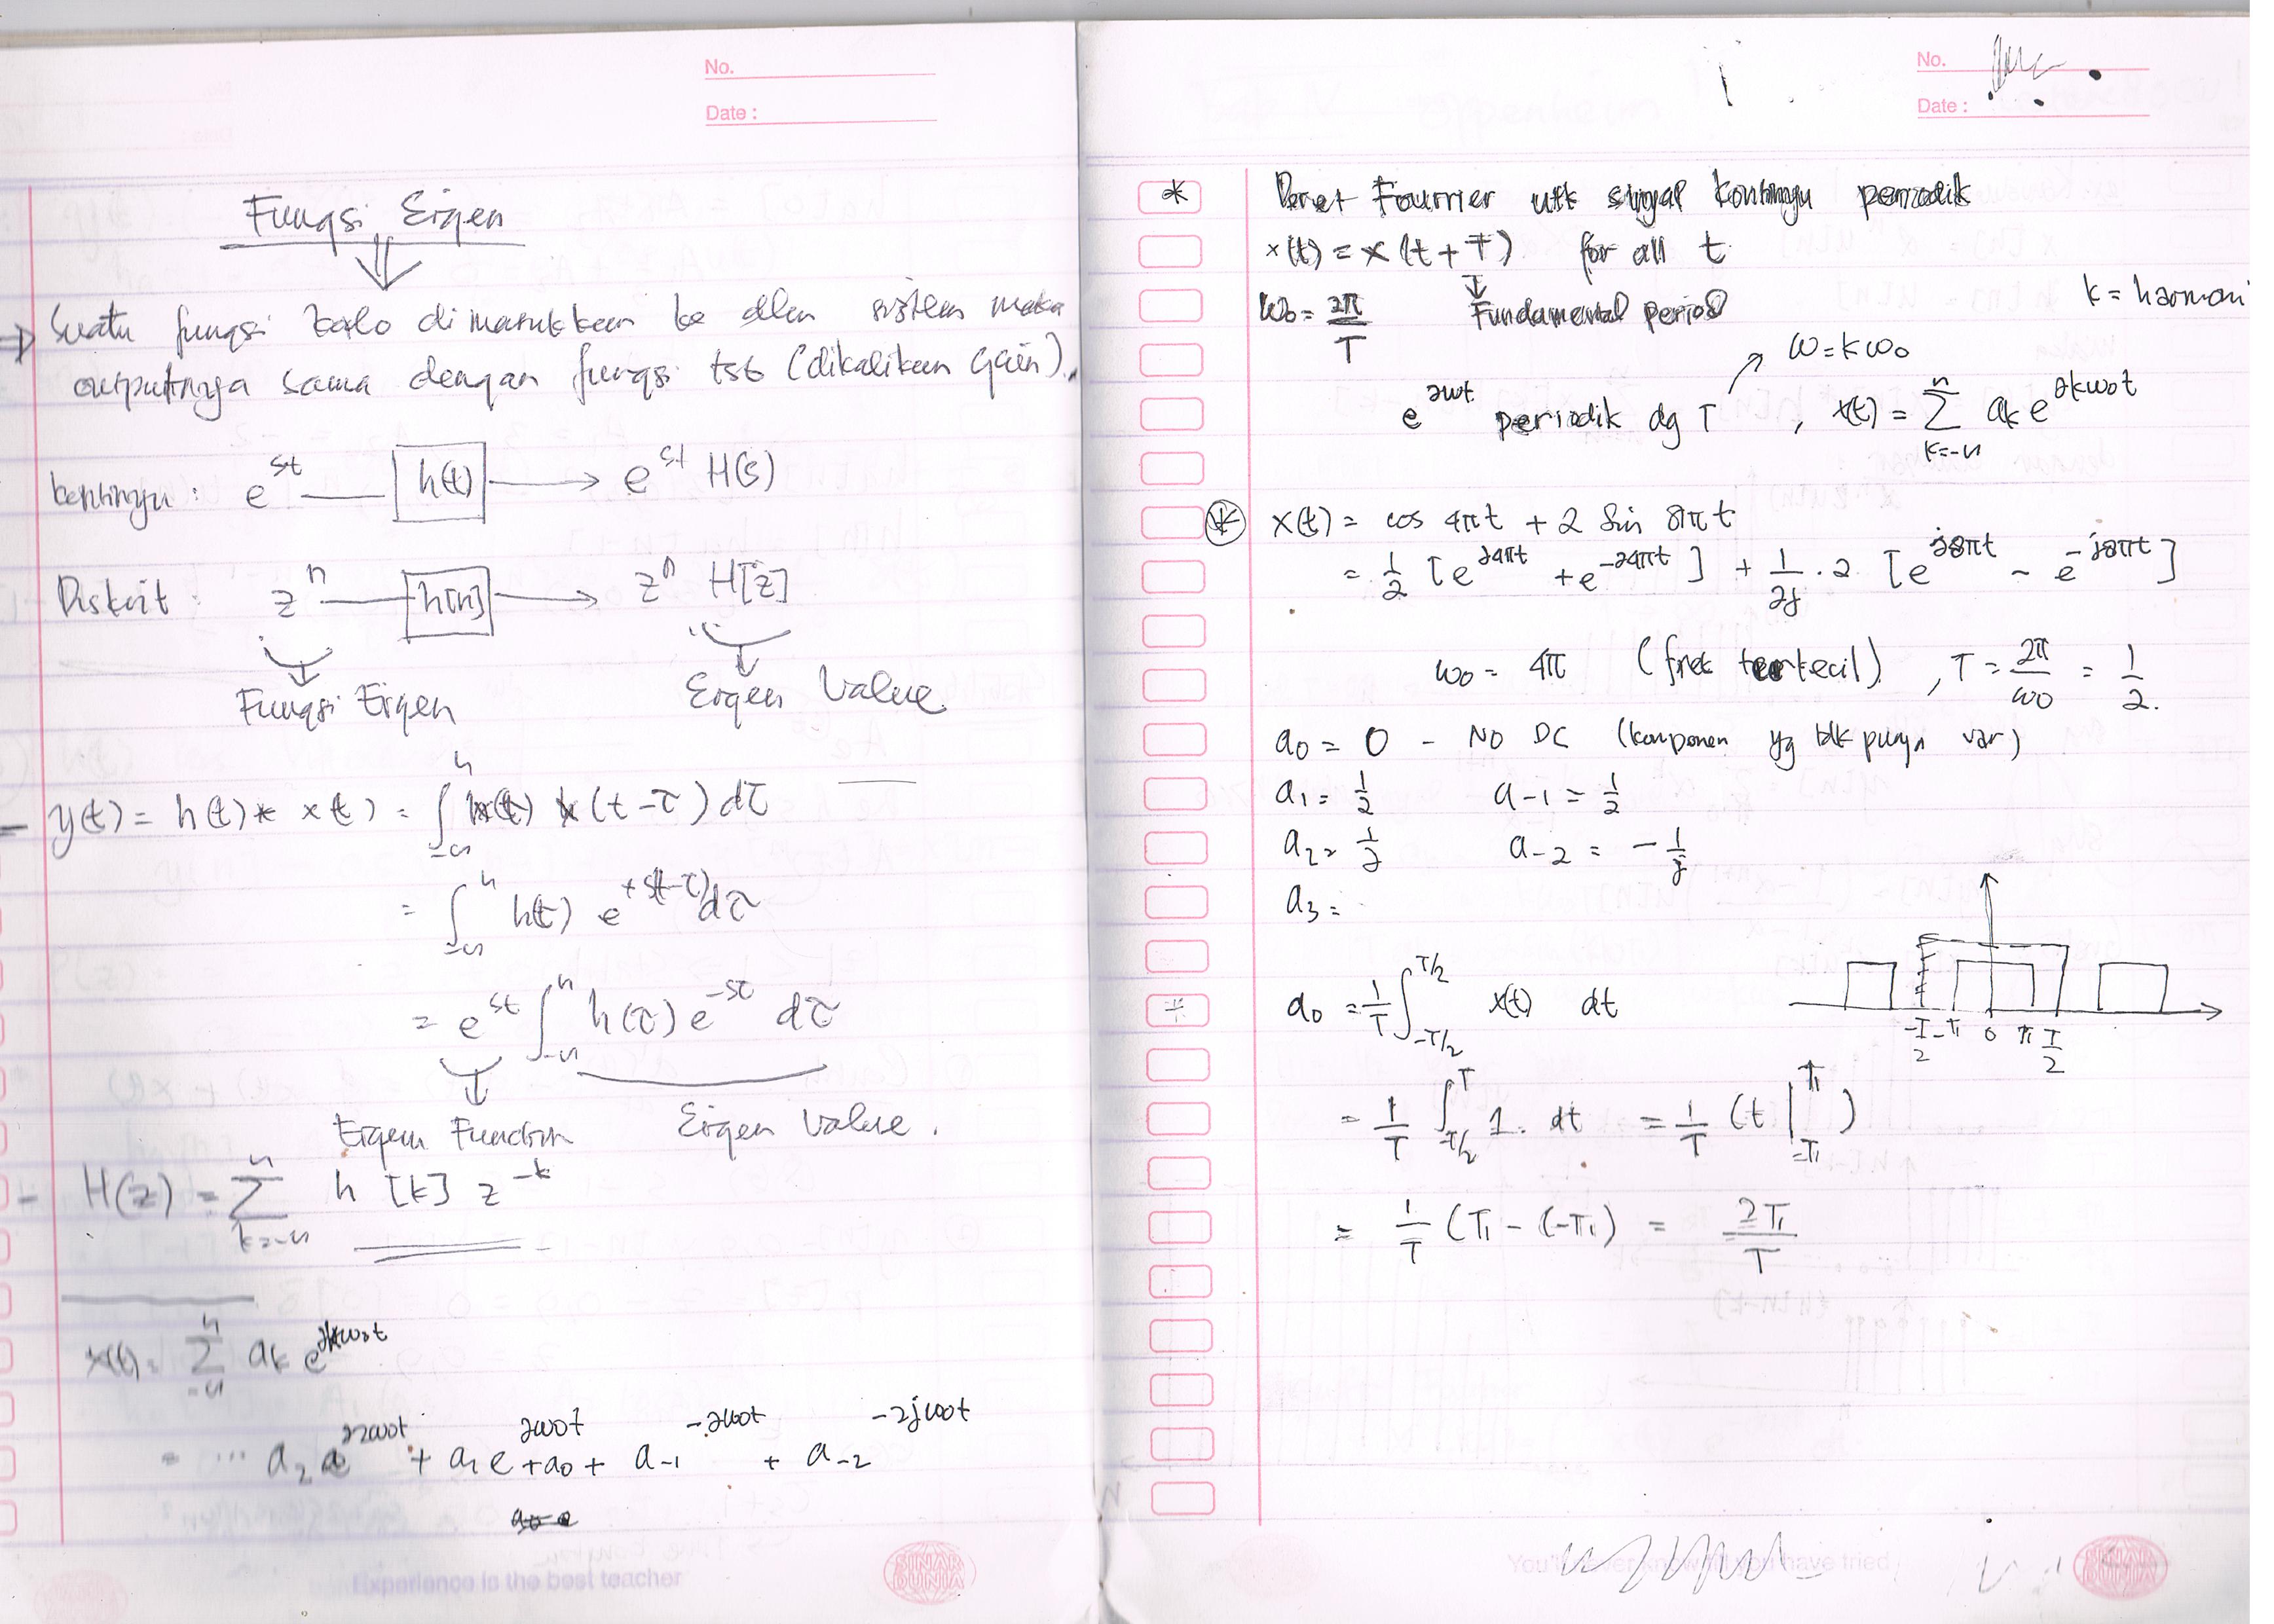 No.
Date :
Fungsi Eigen
⇒ Suatu fungsi kalo dimasukkan ke dlm sistem maka
outputnya sama dengan fungsi tsb (dikalikan gain).
kontinyu : e^{st} — h(t) → e^{st} H(s)
Diskrit : z^n — h[n] → z^n H[z]
Fungsi Eigen Eigen Value
- y(t) = h(t) * x(t) = ∫_{-∞}^{∞} h(t) x(t-τ) dτ
= ∫_{-∞}^{∞} h(t) e^{+s(t-τ)} dτ
= e^{st} ∫_{-∞}^{∞} h(τ) e^{-sτ} dτ
Eigen Function Eigen Value.
- H(z) = Σ_{k=-∞}^{∞} h [k] z^{-k}
x(t) = Σ_{-∞}^{∞} a_k e^{jkω_0t}
= ... a_2 e^{j2ω_0t} + a_1 e^{jω_0t} + a_0 + a_{-1}^{-jω_0t} + a_{-2}^{-2jω_0t}
Experience is the best teacher
SINAR DUNIA
No.
Date :
* Deret Fourrier utk sinyal kontinyu periodik
x(t) = x(t+T) for all t
k = harmoni
ω_0 = 2π/T Fundamental period
ω = kω_0
e^{jωt} periodik dg T , x(t) = Σ_{k=-∞}^{∞} a_k e^{jkω_0t}
* x(t) = cos 4πt + 2 sin 8πt
= 1/2 [e^{j4πt} + e^{-j4πt}] + 1/2j . 2 [e^{j8πt} - e^{-j8πt}]
ω_0 = 4π (frek terkecil) , T = 2π/ω_0 = 1/2.
a_0 = 0 - NO DC (komponen yg tdk punya var)
a_1 = 1/2 a_{-1} = 1/2
a_2 = 1/j a_{-2} = - 1/j
a_3 =
a_0 = 1/T ∫_{-T/2}^{T/2} x(t) dt
-T/2 -T_1 0 T_1 T/2
= 1/T ∫_{-T/2}^{T} 1. dt = 1/T (t |_{-T_1}^{T_1})
= 1/T (T_1 - (-T_1) = 2T_1/T
You'll never know till you have tried
SINAR DUNIA